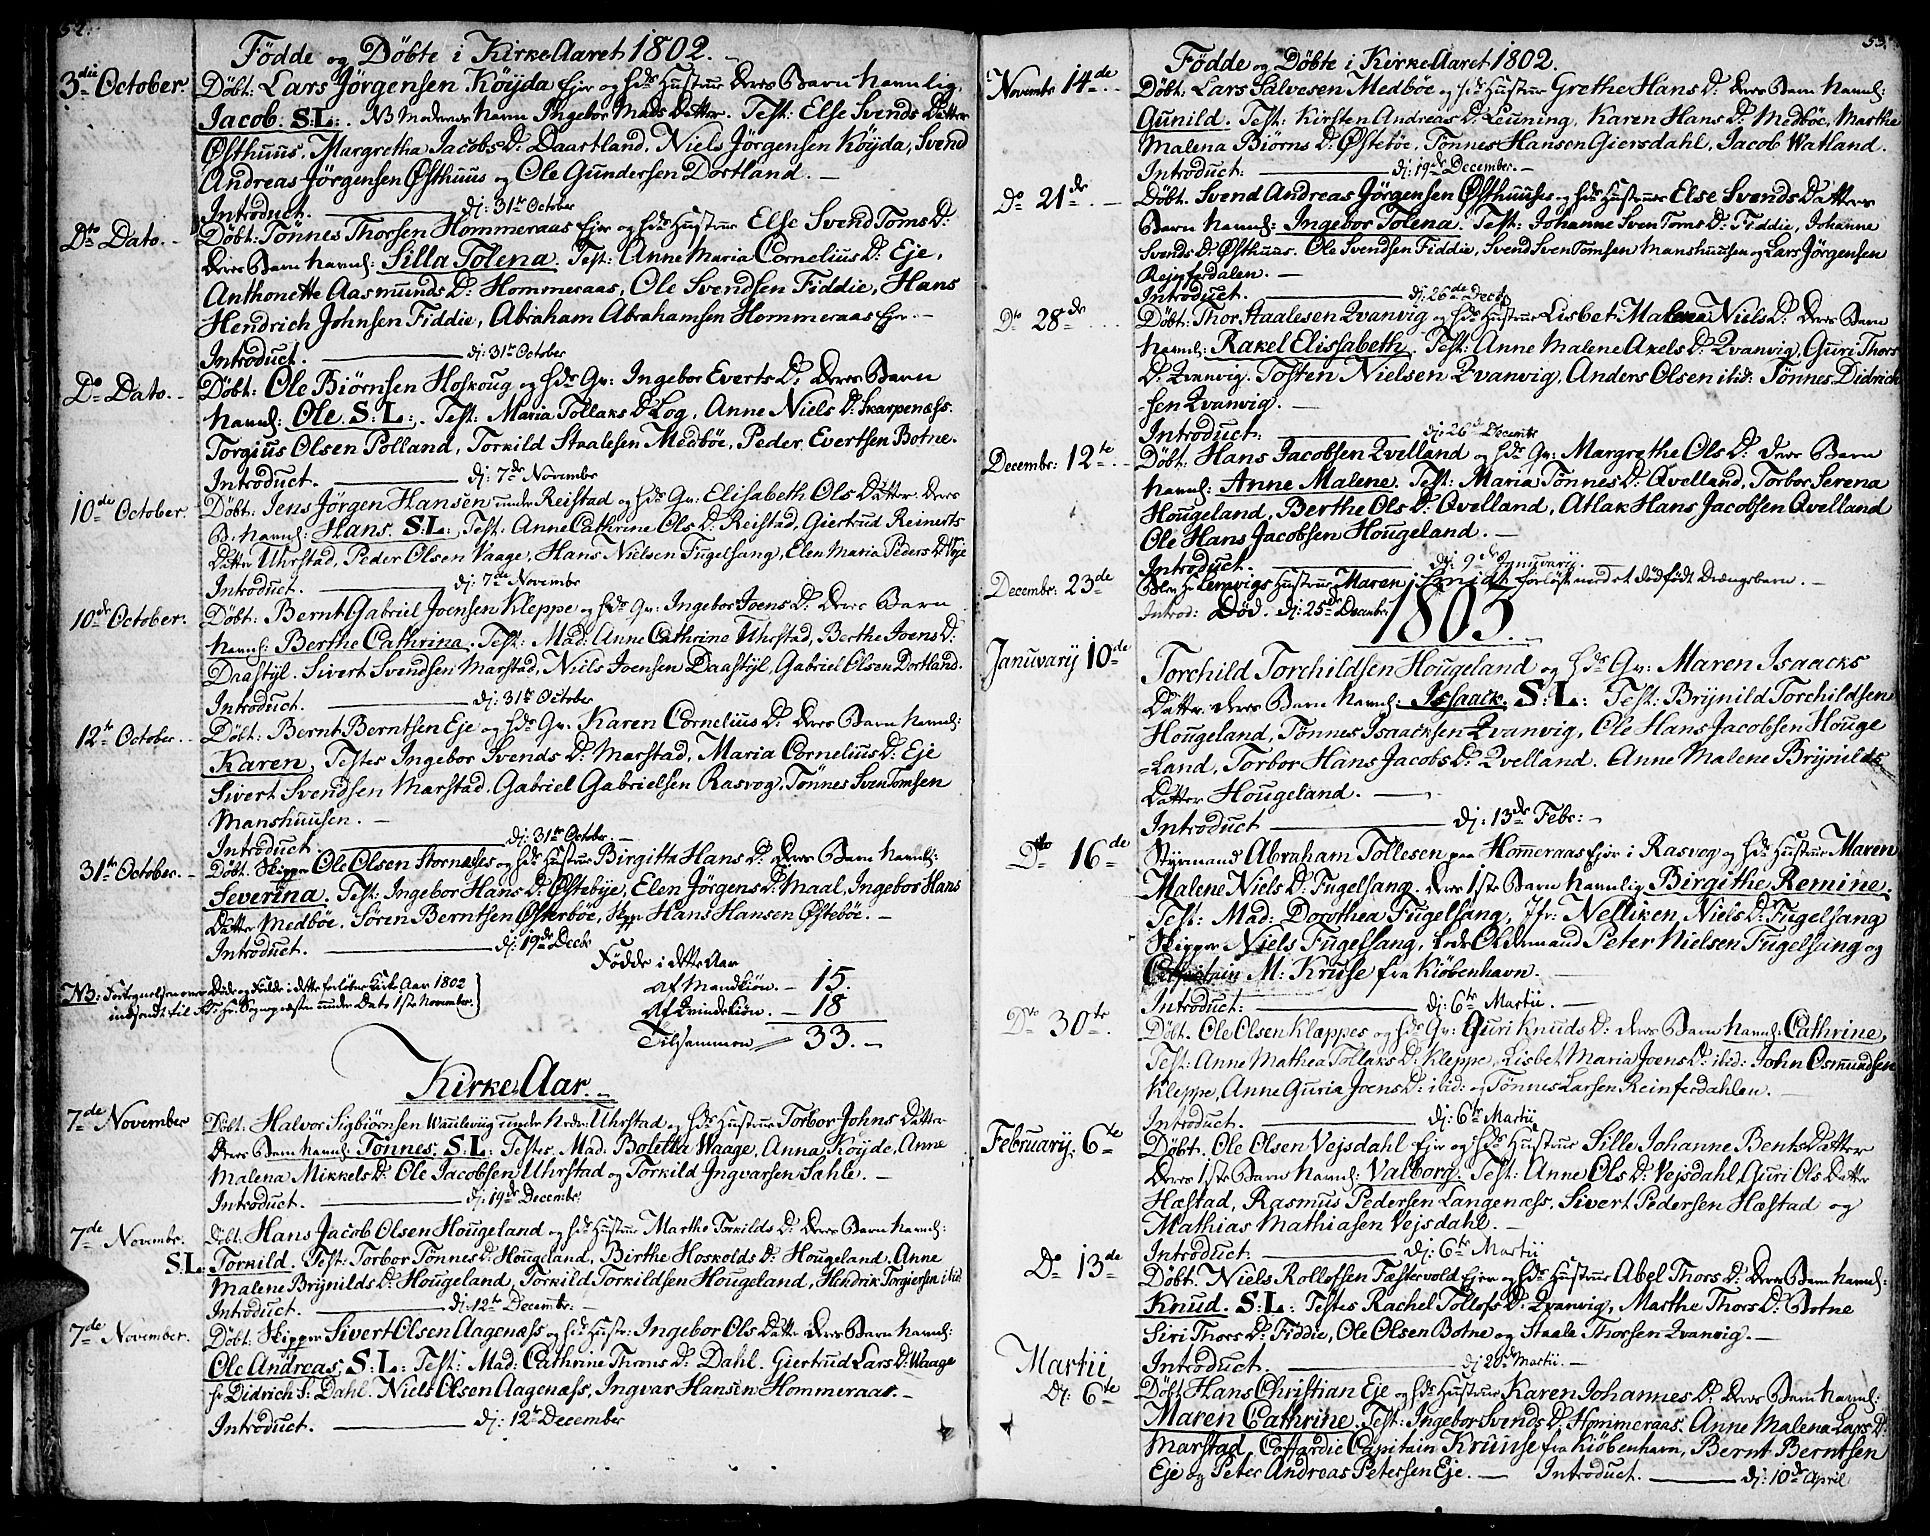 52.
Födde og Döbte i KirkeAaret 1802.
3die October. Döbt: Lars Jörgensen Köyda Ejer og hs Hustrue deres Barn Namnlig.
Jacob. S:L:. NB Moderens Navn Ingebor Mads Datter. Test: Else Svends Datter
Østhuus. Margretha Jacobs D: Daartland, Niels Jörgensen Köyda, Svend
Andreas Jörgensen Østhuus og Ole Gundersen Dortland.
Introduct. d: 31te October
Dto Dato. Döbt: Tönnes Thorsen Hommeraas Ejer og hds Hustrue Else SvendToms D:
deres Barn Navnl: Silla Tolena. Test: Anne Maria Cornelius D: Eje,
Anthonette Aasmunds D: Hommeraas, Ole Svendsen Fiddie, Hans
Hendrich Johnsen Fiddie, Abraham Abrahamsen Hommeraas Ejer.
Introduct. d: 31te October
Do Dato. Döbt: Ole Biörnsen Hoskoug og hds Qv: Ingebor Everts D: deres Barn
Navnl: Ole. S:L:. Test: Maria Tollaks D: Log, Anne Niels D: Skarpenæss.
Torgius Olsen Polland, Torkild Staalesen Medböe, Peder Evertsen Botne.
Introduct. d: 7de Novembr
10de October. Döbt: Jens Jörgen Hansen under Reistad og hds Qv: Elisabeth Ols Datter. deres
B: Navnl: Hans. S:L:, Test: Anne Cathrine Ols D: Reistad, Giertrud Reinerts
Datter Uhrstad, Peder Olsen Vaage, Hans Nielsen Fugelsang, Elen Maria Peders D: Eje
Introduct. d: 7de Novembr
10de October. Döbt: Bernt Gabriel Joensen Kleppe og hds Qv: Ingebor Joens D: deres Barn
Navnl: Berthe Cathrina. Test: Mad: Anne Cathrine Uhrstad, Berthe Joens D:
Daastöl. Sivert Svendsen Marstad, Niels Joensen Daastÿl, Gabriel Olsen Dortland.
Introduct. d: 31te October
12te October. Döbt: Bernt Berntsen Eje og hds Qv: Karen Cornelius D: deres Barn Navnl:
Karen, Testes Ingebor Svends D: Marstad, Maria Cornelius D: Eje
Sivert Svendsen Marstad, Gabriel Gabrielsen Rasvog, Tönnes SvenTomsen
Manshuusen.
Introduct. d: 31te October.
31te October. Döbt. Skipper Ole Olsen Stornæsses og hds Hustrue Birgitta Hans D: deres Barn Navnl:
Severina. Test: Ingebor Hans D: Østebye, Elen Jörgens D: Maal, Ingebor Hans
Datter Medböe. Sören Berntsen Østerböe, Skpr Hans Hansen Østeböe.
Introduct. d: 19de Decbr
Födde i dette Aar
Af Mandkiön. — 15.
Af Qvindekiön. — 18
Tilsammen — 33.
NB: Fortegnelsen over Döde og Födde i dette forløbne Kirke Aar 1802
indsendt til Hr. Sognepræsten under Dato 1ste November.
Kirke Aar.
7de November Döbt. Halvor Sigbiörnsen under Uhrstad og hds Hustrue Torbor Johns Datter
deres Barn Navnl: Tönnes. S:L: Testes. Mad: Boletta Waage, Anna Köyde, Anne
Malena Mikkels D: Ole Jacobsen Uhrstad og Torkild Ingvarsen Sahle.
Introduct. d: 19de Decembr:
7de Novembr. Döbt: Hans Jacob Olsen Hougeland og hds Hustrue Marthe Torkilds D: deres Barn Navnl:
S:L. Torkild. Test: Torbor Tönnes D: Hougeland, Birthe Hoskolds D: Hougeland, Anne
Malene Brÿnilds D: Hougeland, Torkild Torkildsen Hougeland, Hendrik Torgiersen ibid:
Introduct. d: 12te Decembr:
7de November. Döbt: Skipper Sivert Olsen Aagenæss og hds Hustr: Ingebor Ols Datter deres Barn Navnl:
Ole Andreas, S:L: Test: Mad: Cathrine Throns D: Dahl. Giertrud Lars D: Waage
Sr Didrich S: Dahl. Niels Olsen Aagenæss, Ingvar Hansen Hommeraas.
Introduct. d: 12te December
53.
Födde og Döbte i KirkeAaret 1802.
Novembr 14de Döbt: Lars Salvesen Medböe og hds Hustrue Grethe Hans D: deres Barn Navnl:
Gunild. Test: Kirsten Andreas D: Leuning, Karen Hans D: Medböe, Marthe
Malena Biörns D: Østeböe, Tönnes Hansen Giersdahl, Jacob Watland.
Introduct: d: 19de December.
Do 21de Döbt. Svend Andreas Jörgensen Østhuuses og hds Hustrue Else Svends Datters
Barn Navnl: Ingebor Tolena. Test: Johanne SvenToms D: Fiddie, Johanne
Svends D: Østhuus. Ole Svendsen Fiddie, Svend SvenTomsen Manshuusen og Lars Jörgensen
Reinferdalen.
Introduct. d: 26de Decbr
Do 28de Döbt: Thor Staalesen Qvanvig og hds Hustrue Lisbet Malena Niels D: deres Barn
Navnl: Rakel Elissabeth. Test: Anne Malene Axels D: Qvanvig, Guri Thors
D: Qvanvig. Tosten Nielsen Qvanvig, Anders Olsen ibid: Tönnes Didrich
sen Qvanvig.
Introduct: d: 26de Decembr
Decembr: 12te Döbt: Hans Jacobsen Qvelland og hds Qv: Margrethe Ols D: deres Barn
Navnl: Anne Malene. Test: Maria Tönnes D: Qvelland, Torbor Serena
Hougeland, Berthe Ols D: Qvelland, Atlak Hans Jacobsen Qvelland
Ole Hans Jacobsen Hougeland.
Introduct. d: 9de Januvarÿ.
Decembr: 23de Hustrue Maren Schmidt forløst med et dödfödt Drengebarn.
Introd: Död. d: 25de Decembr
1803.
Januvarÿ 10de Torchild Torchildsen Hougeland og hds Qv: Maren Isaacks
Datter deres Barn Navnl: Issaack. S:L: Test: Brÿnild Torchildsen
Hougeland, Tönnes Isaacksen Qvanvig, Ole Hans Jacobsen Houge
=Land, Torbor Hans Jacobs D: Qvelland. Anne Malene Brÿnilds
Datter Hougeland.
Introduct d: 13de Febr:
Dto 16de Styrmand Abraham Tollesen paa Hommeraas Ejer i Rasvog og hds Hustrue Maren
Malene Niels D: Fugelsang. deres 1ste Barn Navnlig Birgithe Remine.
Test: Mad: Dorothea Fugelsang, Jfr: Nelliken Niels D: Fugelsang
Skipper Niels Fugelsang, Lods Oldermand Peter Nielsen Fugelsang og
Capitain M: Kruse fra Kiöbenhavn.
Introduct: d: 6te Martii.
Dto 30te. Döbt. Ole Olsen Klæppes og hds Qv: Guri Knuds D: deres Barn Navnl: Cathrine,
Test: Anne Mathea Tollaks D: Kleppe, Lisbet Maria Joens D: ibid: John Osmundsen
Kleppe, Anne Guria Joens D: ibid: og Tönnes Larsen Reinferdahlen.
Introduct. d: 6te Martii
Februarÿ. 6te Döbt. Ole Olsen Vejsdahl Ejer og hds Hustrue Sille Johanne Bents Datter
deres 1ste Barn Navnl: Valborg. Test: Anne Ols D: Vejsdahl, Guri Ols Datter
Hæstad, Rasmus Pedersen Langenæss, Sivert Pedersen Hæstad og
Mathias Mathiasen Vejsdahl.
Introduct: d: 6te Martii
Do 13de Döbt. Niels Rolloffsen Fæstervold Ejer og hds Hustrue Abel Thors D: deres Barn Navnl:
Knud. S:L: Testes Rachel Tollofs D: Qvanvig, Marthe Thors D: Botne
Siri Thors D: Fiddie, Ole Olsen Botne og Staale Thorsen Qvanvig.
Introduct. d: 20de Martii.
Martii d: 6te Döbt Hans Christian Eje og hds Hustrue Karen Johannes D: deres Barn Navnl:
Maren Cathrine. Test: Ingebor Svends D: Hommeraas. Anne Malena Lars D:
Marstad, Coffardie Capitain Kruuse fra Kiöbenhavn, Bernt Berntsen
Eje og Peter Andreas Petersen Eje. — Introduct. — d: 10de April